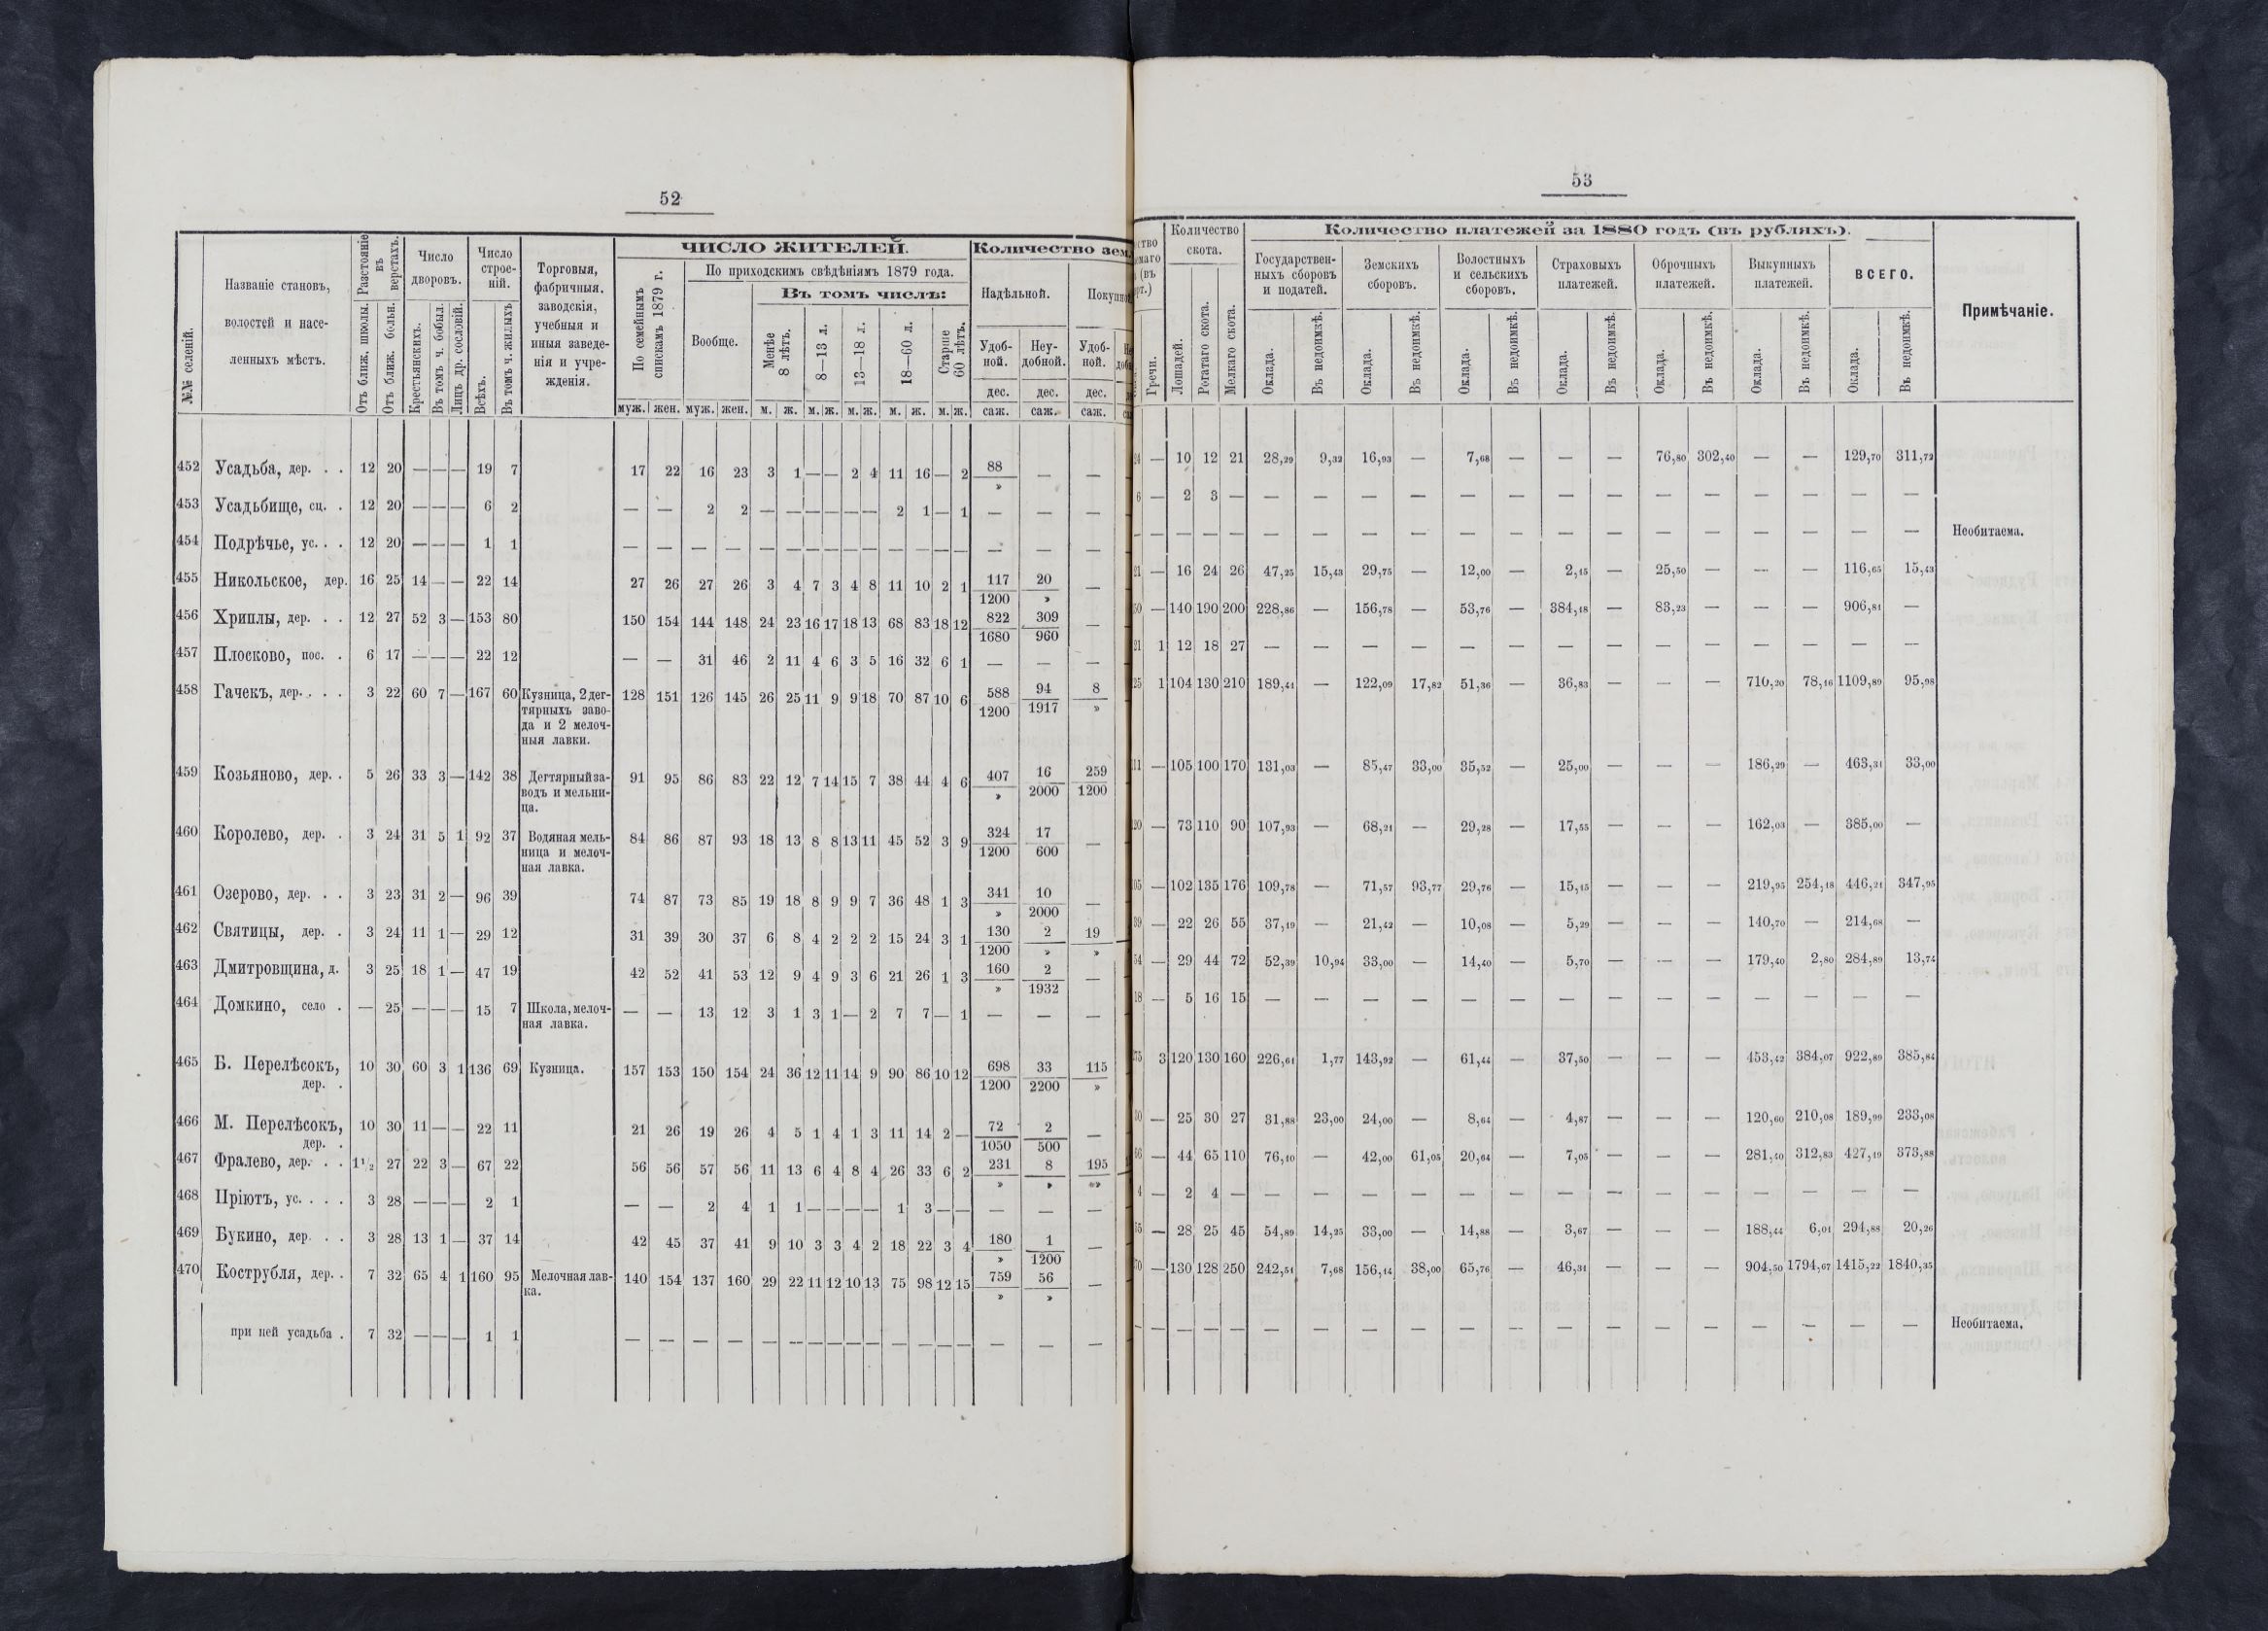 52
№№ селеній.
Названіе становъ, волостей и насе- ленныхъ мѣстъ.
Разстояніе въ верстахъ.
Отъ ближ. школы.
Отъ ближ. больн.
Число дворовъ.
Крестьянскихъ.
Въ томъ ч. бобыл.
Лицъ др. сословій.
Число строе- ній.
Всѣхъ.
Въ томъ ч. жилыхъ
Торговыя, фабричныя, заводскія, учебныя и иныя заведе- нія и учре- жденія.
ЧИСЛО ЖИТЕЛЕЙ.
По семейнымъ спискамъ 1879 г.
По приходскимъ свѣдѣніямъ 1879 года.
Вообще.
Въ томъ числѣ:
Менѣе 8 лѣтъ.
8—13 л.
13—18 л.
18—60 л.
Старше 60 лѣтъ.
Количество зем
Надѣльной.
Удоб- ной.
Неу- добной.
Удоб- ной.
дес. дес. дес.
муж. жен. муж. жен. м. ж. м. ж. м. ж. м. ж. м. ж. саж. саж. саж.
452 Усадьба, дер. . . 12 20 — — — 19 7 17 22 16 23 3 1 — — 2 4 11 16 — 2 88 » — —
453 Усадьбище, сц. . 12 20 — — — 6 2 — — 2 2 — — — — — — 2 1 — 1 — — —
454 Подрѣчье, ус. . . 12 20 — — — 1 1 — — — — — — — — — — — — — — — — —
455 Никольское, дер. 16 25 14 — — 22 14 27 26 27 26 3 4 7 3 4 8 11 10 2 1 117 1200 20 » —
456 Хриплы, дер. . . 12 27 52 3 — 153 80 150 154 144 148 24 23 16 17 18 13 68 83 18 12 822 1680 309 960 —
457 Плосково, пос. . 6 17 — — — 22 12 — — 31 46 2 11 4 6 3 5 16 32 6 1 — — —
458 Гачекъ, дер. . . . 3 22 60 7 — 167 60 Кузница, 2 дег- 128 151 126 145 26 25 11 9 9 18 70 87 10 6 588 1200 94 1917 8 »
тярныхъ заво-
да и 2 мелоч-
ныя лавки.
459 Козьяново, дер. . 5 26 33 3 — 142 38 Дегтярный за- 91 95 86 83 22 12 7 14 15 7 38 44 4 6 407 » 16 2000 259 1200
водъ и мельни-
ца.
460 Королево, дер. . 3 24 31 5 1 92 37 Водяная мель- 84 86 87 93 18 13 8 8 13 11 45 52 3 9 324 1200 17 600 —
ница и мелоч-
ная лавка.
461 Озерово, дер. . . 3 23 31 2 — 96 39 74 87 73 85 19 18 8 9 9 7 36 48 1 3 341 » 10 2000 —
462 Святицы, дер. . 3 24 11 1 — 29 12 31 39 30 37 6 8 4 2 2 2 15 24 3 1 130 1200 2 » 19 »
463 Дмитровщина, д. 3 25 18 1 — 47 19 42 52 41 53 12 9 4 9 3 6 21 26 1 3 160 » 2 1932 —
464 Домкино, село . — 25 — — — 15 7 Школа, мелоч- — — 13 12 3 1 3 1 — 2 7 7 — 1 — — —
ная лавка.
465 Б. Перелѣсокъ, 10 30 60 3 1 136 69 Кузница. 157 153 150 154 24 36 12 11 14 9 90 86 10 12 698 1200 33 2200 115 »
дер. .
466 М. Перелѣсокъ, 10 30 11 — — 22 11 21 26 19 26 4 5 1 4 1 3 11 14 2 — 72 1050 2 500 —
дер. .
467 Фралево, дер. . . 1½ 27 22 3 — 67 22 56 56 57 56 11 13 6 4 8 4 26 33 6 2 231 » 8 » 195 »
468 Пріютъ, ус. . . . 3 28 — — — 2 1 — — 2 4 1 1 — — — — 1 3 — — — — —
469 Букино, дер. . . 3 28 13 1 — 37 14 42 45 37 41 9 10 3 3 4 2 18 22 3 4 180 » 1 1200 —
470 Кострубля, дер. . 7 32 65 4 1 160 95 Мелочная лав- 140 154 137 160 29 22 11 12 10 13 75 98 12 15 759 » 56 » —
ка.
при ней усадьба . 7 32 — — — 1 1 — — — — — — — — — — — — — — — — —
53
Гречи.
Количество скота.
Лошадей.
Рогатаго скота.
Мелкаго скота.
Количество платежей за 1880 годъ (въ рубляхъ).
Государствен- ныхъ сборовъ и податей.
Земскихъ сборовъ.
Волостныхъ и сельскихъ сборовъ.
Страховыхъ платежей.
Оброчныхъ платежей.
Выкупныхъ платежей.
ВСЕГО.
Оклада. Въ недоимкѣ. Оклада. Въ недоимкѣ. Оклада. Въ недоимкѣ. Оклада. Въ недоимкѣ. Оклада. Въ недоимкѣ. Оклада. Въ недоимкѣ. Оклада. Въ недоимкѣ.
Примѣчаніе.
— 10 12 21 28,29 9,32 16,93 — 7,68 — — — 76,80 302,40 — — 129,70 311,72
6 — 2 3 — — — — — — — — — — — — — — —
— — — — — — — — — — — — — — — — — — — Необитаема.
21 — 16 24 26 47,25 15,43 29,75 — 12,00 — 2,15 — 25,50 — — — 116,65 15,43
— 140 190 200 228,86 — 156,78 — 53,76 — 384,18 — 83,23 — — — 906,81 —
21 1 12 18 27 — — — — — — — — — — — — — —
25 1 104 130 210 189,41 — 122,09 17,82 51,36 — 36,83 — — — 710,20 78,16 1109,89 95,98
— 105 100 170 131,03 — 85,47 33,00 35,52 — 25,00 — — — 186,29 — 463,31 33,00
— 73 110 90 107,93 — 68,21 — 29,28 — 17,55 — — — 162,03 — 385,00 —
— 102 135 176 109,78 — 71,57 93,77 29,76 — 15,15 — — — 219,95 254,18 446,21 347,95
— 22 26 55 37,19 — 21,42 — 10,08 — 5,29 — — — 140,70 — 214,68 —
— 29 44 72 52,39 10,94 33,00 — 14,40 — 5,70 — — — 179,40 2,80 284,89 13,74
18 — 5 16 15 — — — — — — — — — — — — — —
3 120 130 160 226,61 1,77 143,92 — 61,44 — 37,50 — — — 453,42 384,07 922,89 385,84
— 25 30 27 31,88 23,00 24,00 — 8,64 — 4,87 — — — 120,60 210,08 189,99 233,08
— 44 65 110 76,10 — 42,00 61,05 20,64 — 7,05 — — — 281,40 312,83 427,19 373,88
4 — 2 4 — — — — — — — — — — — — — — —
— 28 25 45 54,89 14,25 33,00 — 14,88 — 3,67 — — — 188,44 6,01 294,88 20,26
— 130 128 250 242,51 7,68 156,14 38,00 65,76 — 46,31 — — — 904,50 1794,67 1415,22 1840,35
— — — — — — — — — — — — — — — — — — — Необитаема.